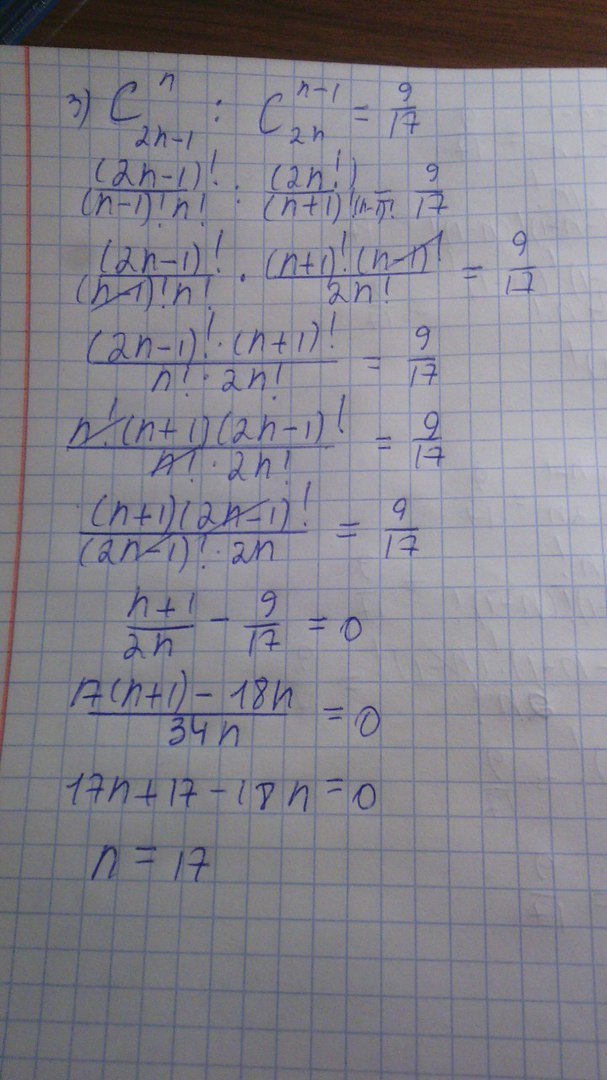 3) C_{2n-1}^{n} : C_{2n}^{n-1} = 9/17
(2n-1)!/((n-1)!n!) : (2n!)/((n+1)!(n-1)!) = 9/17
(2n-1)!/((n-1)!n!) · (n+1)!(n-1)!/2n! = 9/17
(2n-1)!·(n+1)!/(n!·2n!) = 9/17
n!(n+1)(2n-1)!/(n!·2n!) = 9/17
(n+1)(2n-1)!/((2n-1)!·2n) = 9/17
(n+1)/2n - 9/17 = 0
(17(n+1) - 18n)/34n = 0
17n+17-18n=0
n = 17